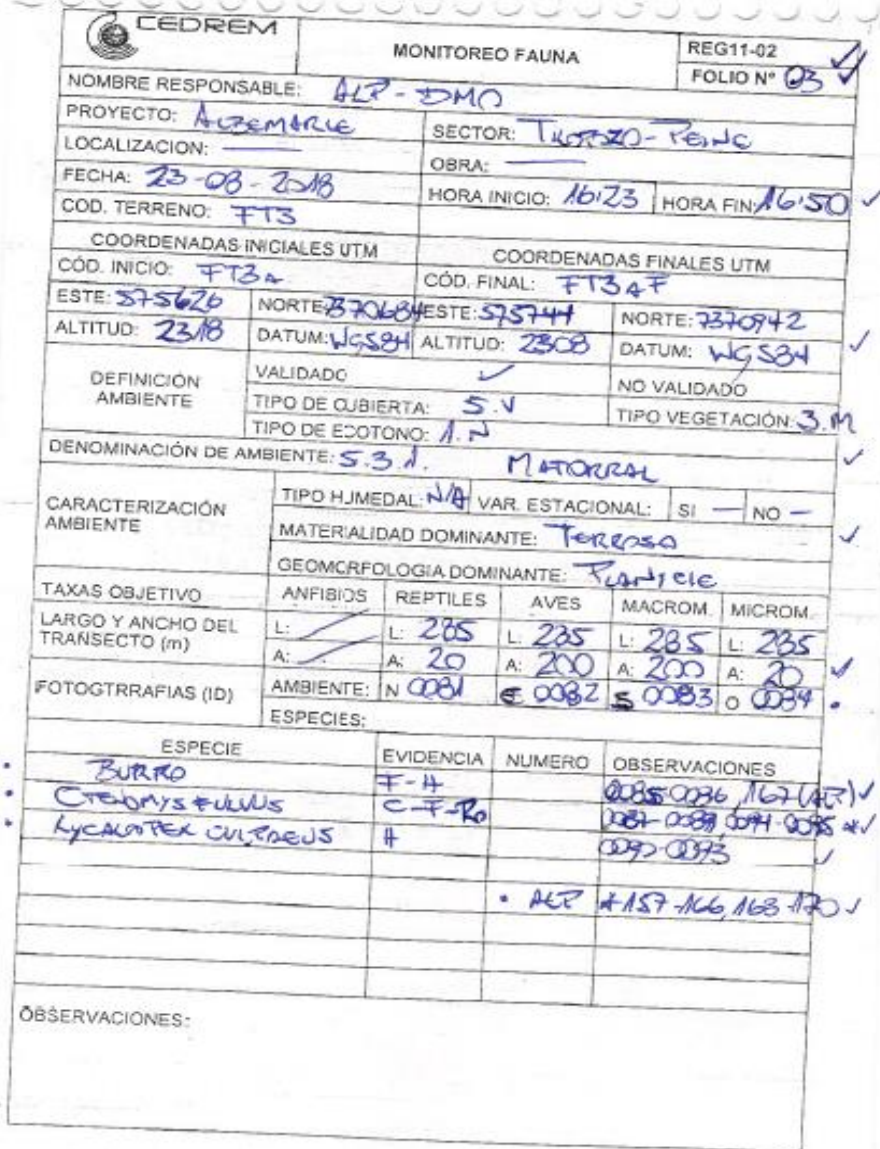 CEDREM
MONITOREO FAUNA
REG11-02
FOLIO N° 03
NOMBRE RESPONSABLE: ALP - DMO
PROYECTO: ALBEMARLE
SECTOR: - PEINE
LOCALIZACION: —
OBRA: —
FECHA: 23-08-2018
HORA INICIO: 16:23 HORA FIN: 16:50
COD. TERRENO: FT3
COORDENADAS INICIALES UTM
COORDENADAS FINALES UTM
CÓD. INICIO: FT3a
CÓD. FINAL: FT3aF
ESTE: 575626 NORTE: 7370684 ESTE: 575744 NORTE: 7370942
ALTITUD: 2318 DATUM: WGS84 ALTITUD: 2308 DATUM: WGS84
DEFINICIÓN AMBIENTE
VALIDADO ✓ NO VALIDADO
TIPO DE CUBIERTA: 5.V TIPO VEGETACIÓN: 3.M
TIPO DE ECOTONO: 1.N
DENOMINACIÓN DE AMBIENTE: 5.3.1. MATORRAL
CARACTERIZACIÓN AMBIENTE
TIPO HUMEDAL: N/A VAR. ESTACIONAL: SI — NO —
MATERIALIDAD DOMINANTE: TERROSO
GEOMORFOLOGIA DOMINANTE: PLANICIE
TAXAS OBJETIVO ANFIBIOS REPTILES AVES MACROM. MICROM.
LARGO Y ANCHO DEL TRANSECTO (m)
L: L: 285 L: 285 L: 285 L: 285
A: A: 20 A: 200 A: 200 A: 20
FOTOGTRRAFIAS (ID) AMBIENTE: N 0081 E 0082 S 0083 O 0084
ESPECIES:
ESPECIE EVIDENCIA NUMERO OBSERVACIONES
BURRO F-H 0085-0086, 167 (ALP)
CTENOMYS FULVUS C-F-Ro 0094-0095 *
LYCALOPEX CULPAEUS H
• ALP *157-166, 168-170
OBSERVACIONES: